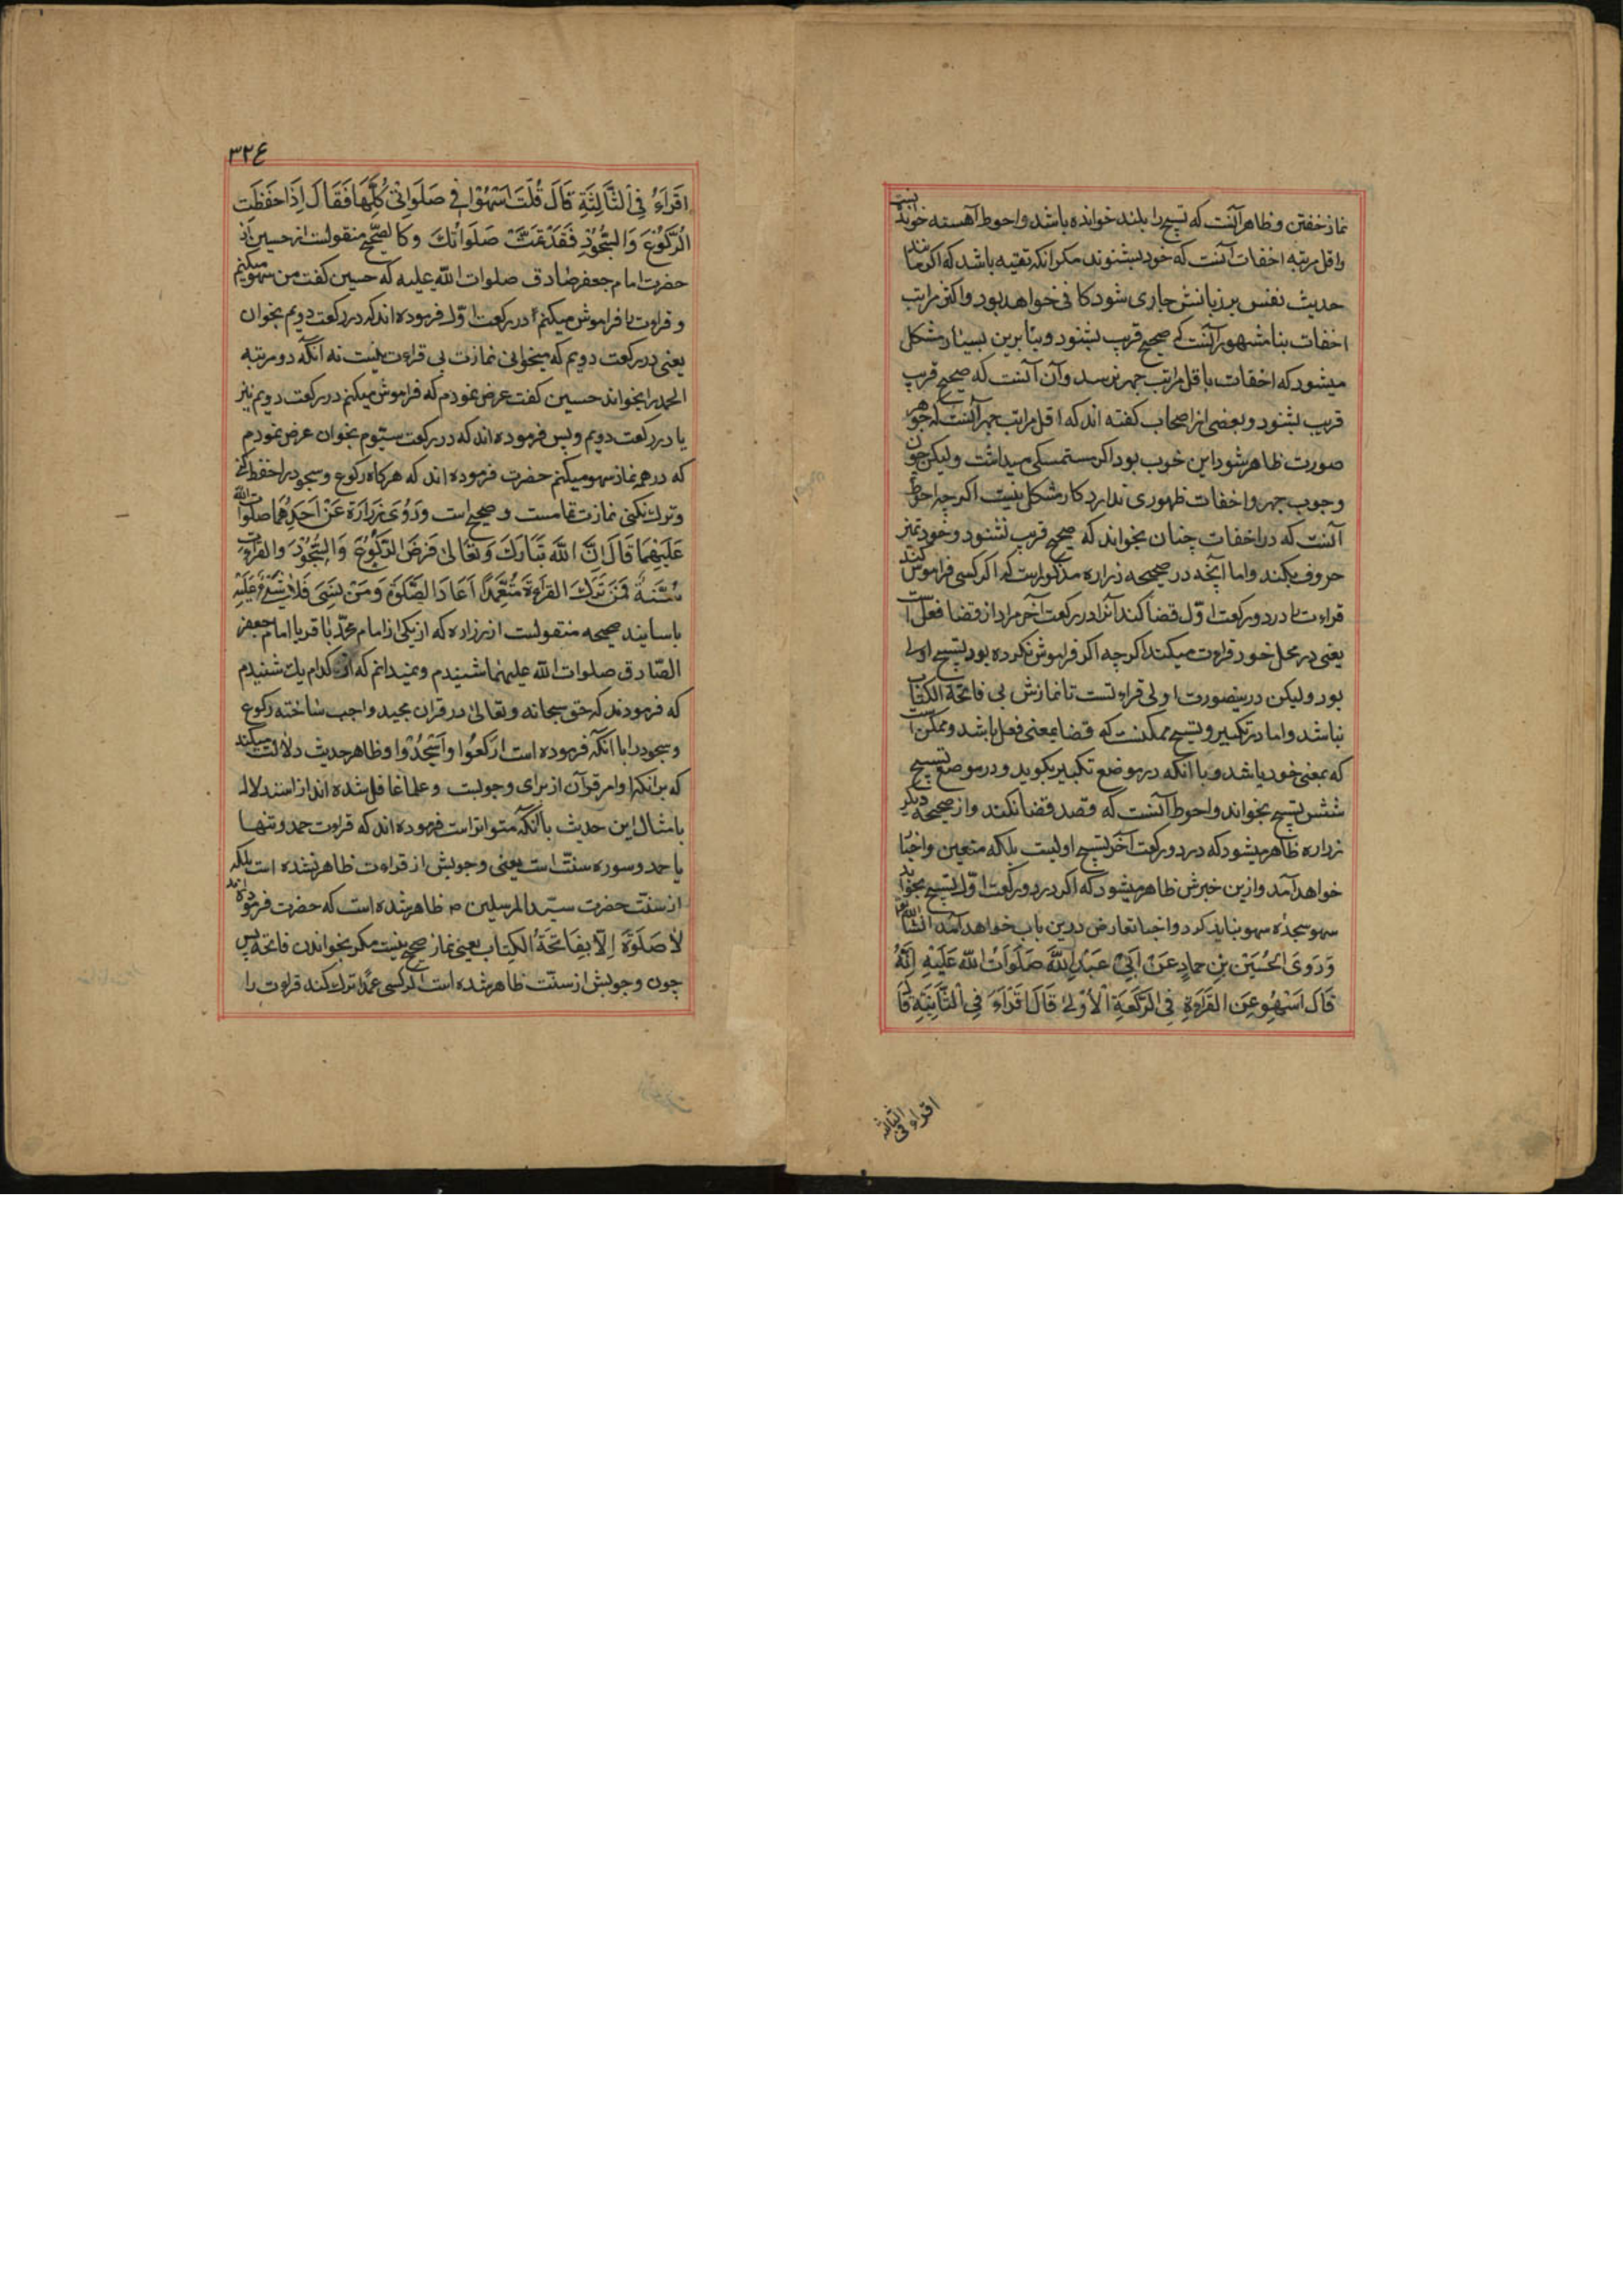 نماز خفتن و ظاهر آنست که تسبیح را بلند خوانده باشد و احوط آهسته خوند نیست
و اقل مرتبه اخفات آنست که خود بشنوند مکر آنکه تقیه باشد که اکر مانند
حدیث نفس بر زبانش جاری شود کافی خواهد بود و اکثر مراتب
اخفات بنا مشهور آنست که صحیح قریب بشنود و بنا برین بسیار مشکل
میشود که اخفات باقل مراتب جهر نرسد و آن آنست که صحیح قریب
قریب بشنود و بعضی از اصحاب کفته اند که اقل مراتب جهر آنست که جوهر
صورت ظاهر شود این خوب بود اکر مستمسکی میداشت ولیکن چون
وجوب جهر و اخفات ظهوری ندارد کار مشکل نیست اکرچه احوط
آنست که در اخفات چنان بخواند که صحیح قریب نشنود و خود تمیز
حروف بکند و اما آنچه در صحیحه زراره مذکور است که اکر کسی فراموش کند
قراءت را در دو رکعت اوّل قضا کند آنرا در رکعت آخر مراد از قضا فعل است
یعنی در محل خود قراءت میکند اکرچه اکر فراموش نکرده بود تسبیح اولی
بود ولیکن درینصورت اولی قراءتست تا نمازش بی فاتحة الکتاب
نباشد و اما در تکبیر و تسبیح ممکنست که قضا بمعنی فعل باشد و ممکن است
که بمعنی خود باشد و با آنکه در موضع تکبیر تکبیر بکوید و در موضع تسبیح
شش تسبیح بخواند و احوط آنست که قصد قضا نکند و از صحیحه دیکر
زراره ظاهر میشود که در دو رکعت آخر تسبیح اولیست بلکه متعین واجبًا
خواهد آمد و ازین خبرش ظاهر میشود که اکر در دو رکعت اوّل تسبیح بخواند
سهو سجدهٔ سهو نباید کرد و اخبار تعارض درین باب خواهد آمد انشاء الله تعا
وَرَوَی الْحُسَیْن بْنِ حمادٍ عَنْ اَبِیْ عَبْدِ اللّه صَلَوَاتُ اللّه عَلَیْهِ اِنَّهُ
قَالَ اَسْهُو عَنِ القَرَاءَةِ فِی الرَّکْعَةِ الْاُوْلیٰ قَالَ اَقْرَاءَ فِی الثَّانِیَةِ قَالَ
اقراء فی الثالثه
٣٢٤
اِقْرَاءُ فِی الثَّالِثَةِ قَالَ قُلْتُ اَسْهُوْا فِی صَلَوَاتِیْ کُلِّهَا فَقَالَ اِذَا حَفِظْتَ
الْرُکُوْعَ وَالسُّجُوْدِ فَقَدْ تَمَّتْ صَلَوَاتُكَ و کالصّحیح منقولست از حسین از
حضرت امام جعفر صادق صلوات اللّه علیه که حسین کفت من سهو میکنم
و قراءت را فراموش میکنم در رکعت اوّل فرموده اند که در رکعت دویم بخوان
یعنی در رکعت دویم که میخوانی نمازت بی قراءت نیست نه آنکه دو مرتبه
الحمد را بخواند حسین کفت عرض نمودم که فراموش میکنم در رکعت دویم نیز
یا در رکعت دویم و پس فرموده اند که در رکعت سیّوم بخوان عرض نمودم
که در همه نماز سهو میکنم حضرت فرموده اند که هرکاه رکوع و سجود را حفظ کنی
و ترك نکنی نمازت تمامست و صحیح است وَرُوِیَ زَرَارَة عَنْ اَحَدِهُما صلوات اللّه
عَلَیْهِمَا قَالَ اِنَّ اللّه تَبَارَكَ وَتَعَالیٰ فَرَضَ الرُّکُوْعَ وَالسُّجُوْدَ وَالْقَرَاءَةَ
سُنَّةٌ فَمَنْ تَرَكَ القَرَاءَةَ مُتَعَمِّدًا اَعَادَ الصَّلوٰةَ وَمَنْ نَسِیَ فَلَا شَیْءَ عَلَیْهِ
باسانید صحیحه منقولست از زراره که از یکی از امام محمّد باقر یا امام جعفر
الصّادق صلوات اللّه علیهما شنیدم و نمیدانم که از کدام یك شنیدم
که فرمودند که حق سبحانه و تعالیٰ در قران مجید واجب ساخته رکوع
و سجود را با آنکه فرموده است ارْکَعُوا وَاسْجُدُوْا و ظاهر حدیث دلالت میکند
که بر آنکه اوامر قرآن از برای وجوبست و علما غافل شده اند از استدلال
بامثال این حدیث با آنکه متواتر است فرموده اند که قراءت حمد و تنها
یا حمد و سوره سنّت است یعنی وجوبش از قراءت ظاهر نشده است بلکه
از سنّت حضرت سیّد المرسلین ص ظاهر شده است که حضرت فرموده اند
لَاصَلَوٰةَ اِلّا بِفَاتِحَةُ الکِتَاب یعنی نماز صحیح نیست مکر بخواندن فاتحه پس
چون وجوبش از سنّت ظاهر شده است اکر کسی عمدًا ترك کند قراءت را